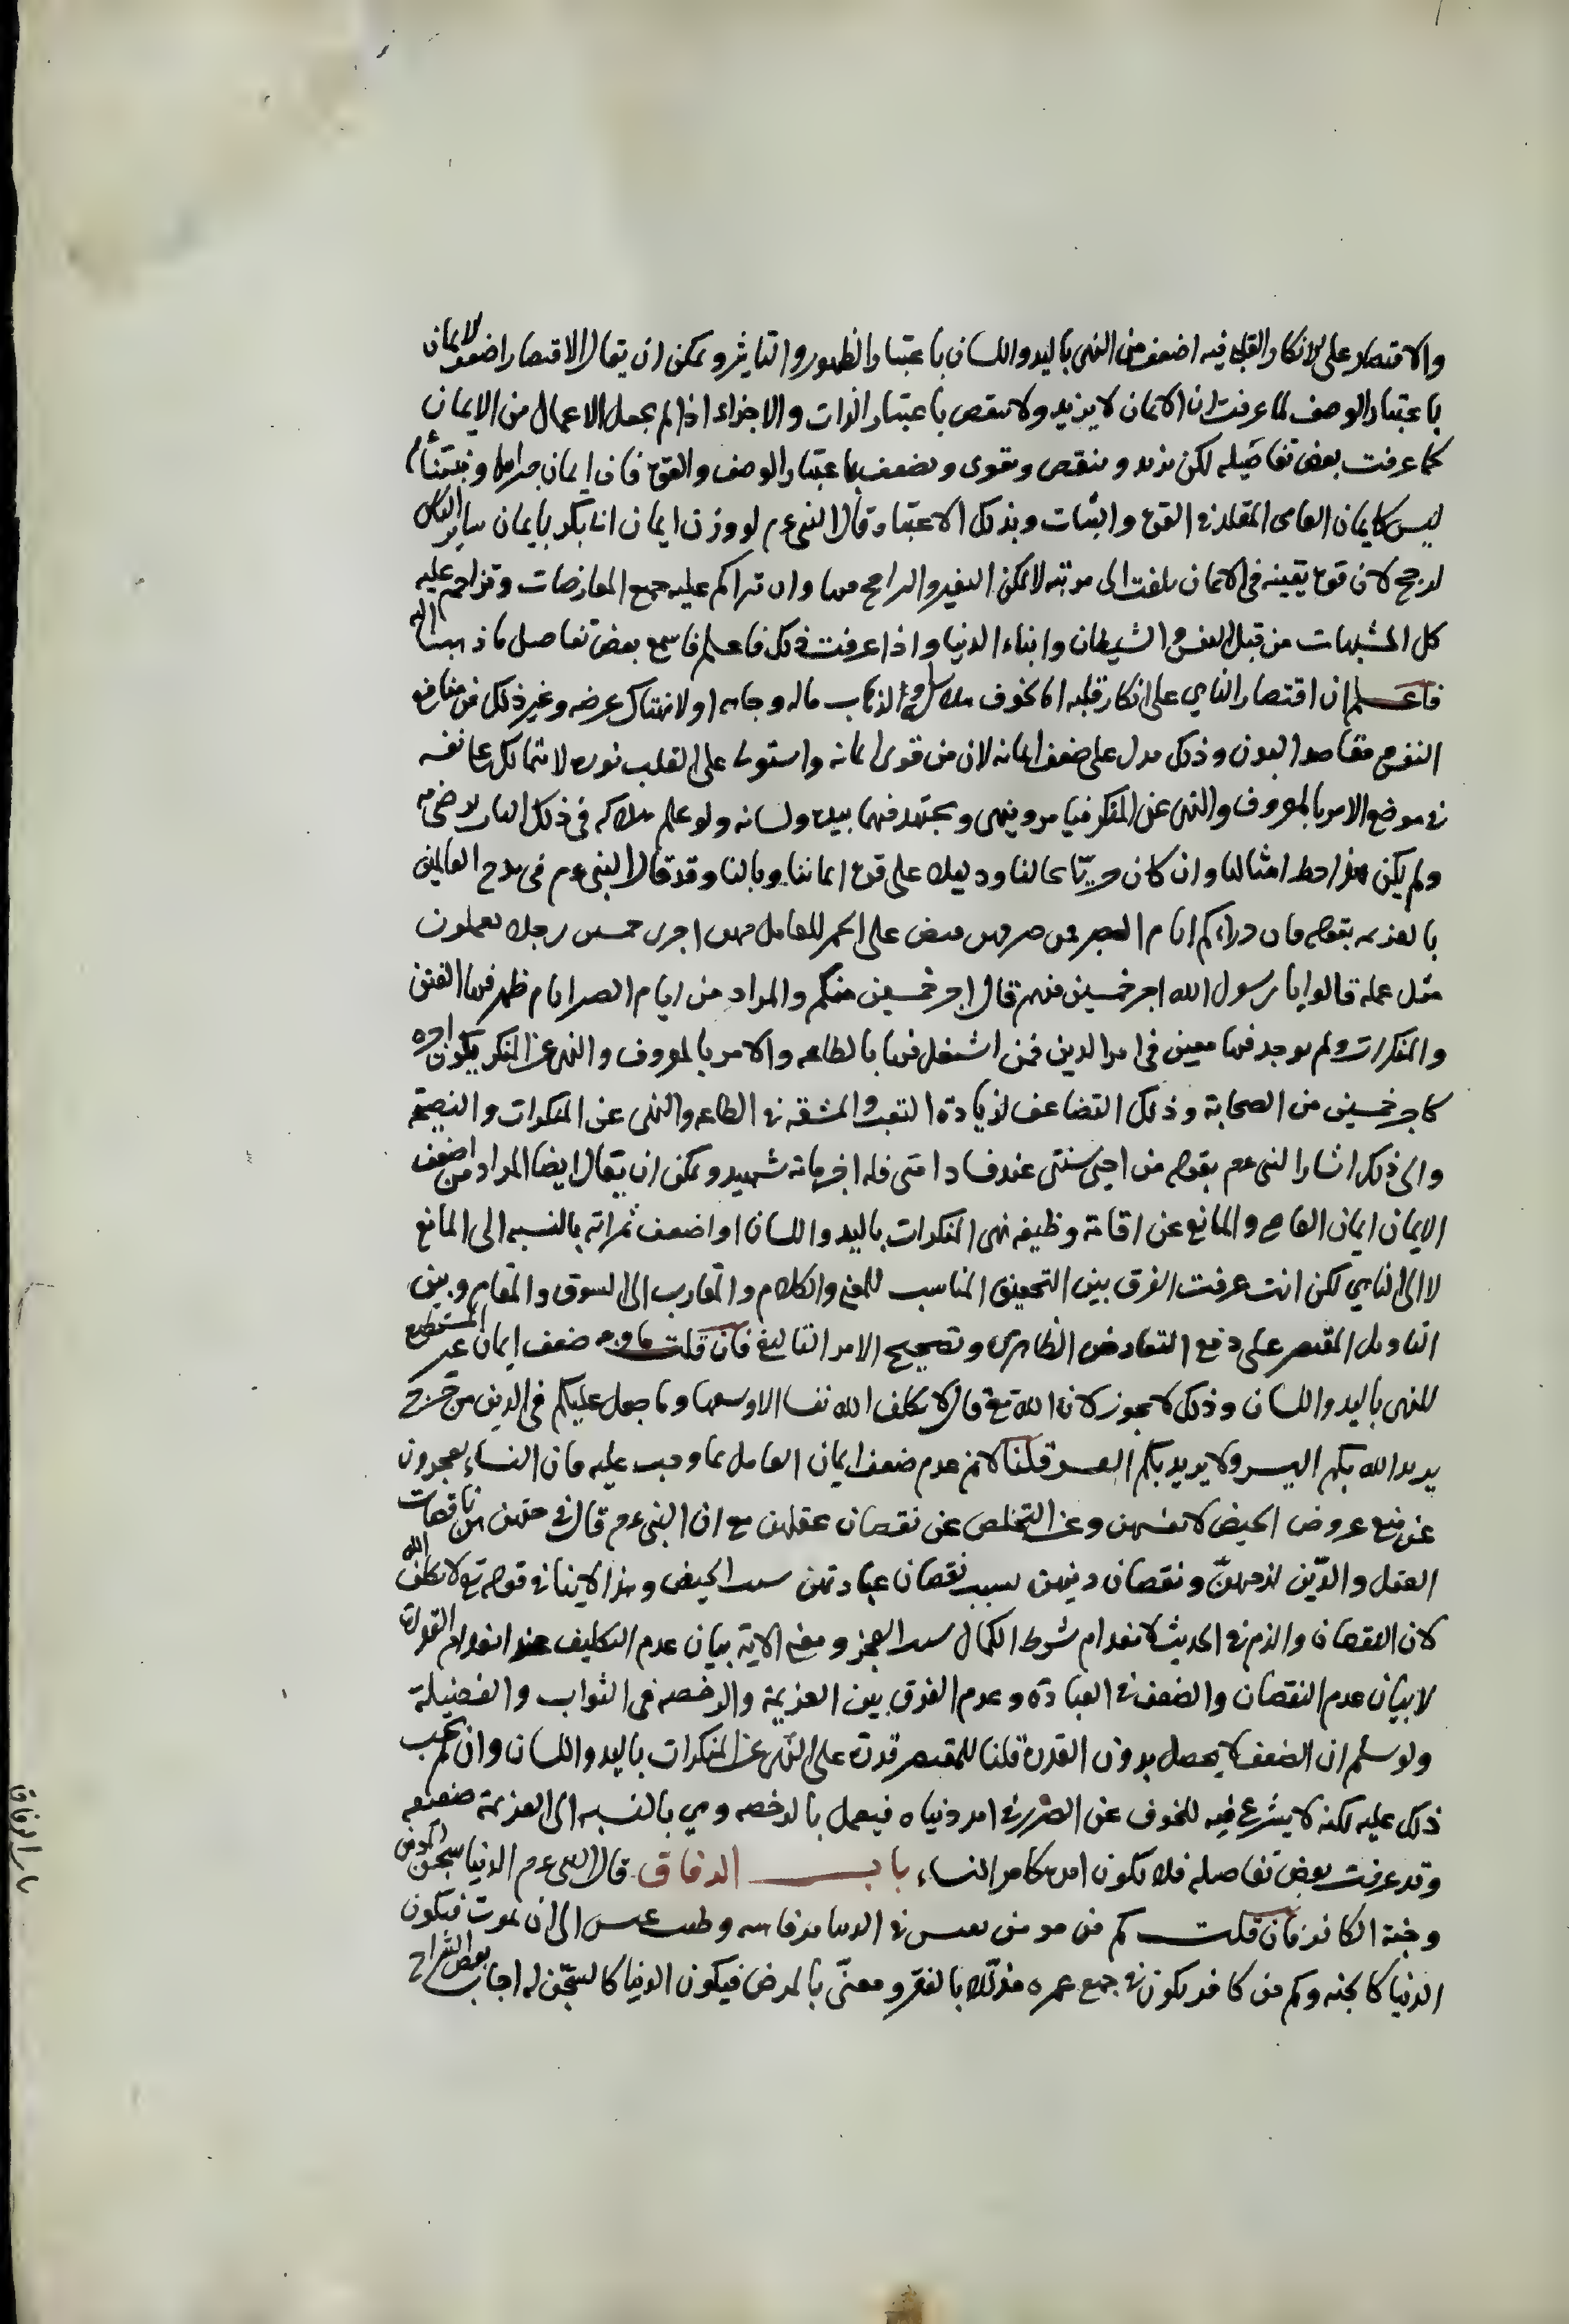 والاقتصار على الانكار القلبى فيه اضعف من النهى باليد واللسان باعتبار الظهور والتاثير ويمكن ان يقال الاقتصار اضعف الايمان
باعتبار الوصف لما عرفت ان الايمان لا يزيد ولا ينقص باعتبار الذات والاجزاء اذا لم يجعل الاعمال من الايمان
كما عرفت بعض تفاصيله لكن يزيد وينقص ويقوى ويضعف باعتبار الوصف والقوة فان ايمان
ليس كايمان العامى المقلد فى القوة والثبات وبذلك الاعتبار قال النبى عم لو وزن ايمان ابا بكر بايمان ساير الكل
لرجح لان قوة يقينه فى الايمان بلغت الى مرتبه لا يمكن التغير والراجح منها وان تراكم عليه جميع المعارضات وتزاحم عليه
كل المشبهات من قبل النفس والشيطان وابناء الدنيا واذا عرفت ذلك فاعلم فاسمع بعض تفاصيل ما ذهبنا اليه
فاعلم ان اقتصار الناهى على انكار قلبه اما لخوف هلاك او لذهاب ماله وجاهه او لانهتاك عرضه وغير ذلك من منافع
النفس ومقاصد البدن وذلك يدل على ضعف ايمانه لان من قوى ايمانه واستولى على القلب نوره لا يتمالك نفسه
فى موضع الامر بالمعروف والنهى عن المنكر فيامر وينهى ويجتهد فيهما بيده ولسانه ولو علم هلاكه فى ذلك
ولم يكن هذا حط امثالنا وان كان بحالنا ودليلا على قوة ايماننا وبالنا وقد قال النبى عم فى مدح العالمين
بالعزيمه بقوله فان وراءكم ايام الصبر فمن صبر فيهن قبض على الجمر للعامل فيهن اجر خمسين رجلا يعملون
مثل عمله قالوا يا رسول الله اجر خمسين منهم قال اجر خمسين منكم والمراد من ايام الصبر ايام ظهر فيها الفتن
والمنكرات ولم يوجد فيها معين فى امر الدين فمن اشتغل فيها بالطاعه والامر بالمعروف والنهى عن المنكر يكون اجره
كاجر خمسين من الصحابة وذلك التضاعف لزيادة التعب والمشقه فى الطاعه والنهى عن المنكرات والنصيحة
والى ذلك اشار النبى عم بقوله من احيى سنتى عند فساد امتى فله اجر ماية شهيد ويمكن ان يقال ايضا المراد من اضعف
الايمان ايمان العاصى والمانع عن اقامة وظيفه نهى المنكرات باليد واللسان او اضعف ثمراته بالنسبه الى المانع
لا الى الناهى لكن انت عرفت الفرق بين التحقيق المناسب للمعنى والكلام والمقارب الى السوق والمقام وبين
التاويل المقتصر على دفع التعارض الظاهرى وتصحيح الامر التاليفى فان قلت ما وجه ضعف ايمان غير المستطيع
للنهى باليد واللسان وذلك لا يجوز لان الله تع قال لا يكلف الله نفسا الا وسعها وما جعل عليكم فى الدين من حرج
يريد الله بكم اليسر ولا يريد بكم العسر قلنا لا نم عدم ضعف ايمان العامل بما وجب عليه فان النساء يعجزون
عن منع عروض الحيض لانفسهن وعن التخلص عن نقصان عقلهن مع ان النبى عم قال فى حقهن هن ناقصات
العقل والدّين لذمهنّ ونقصان دينهن بسبب نقصان عبادتهن بسبب الحيض وهذا لا ينافى قوله تع لا يكلف الله
لان النقصان والذم فى الحديث لانعدام شرط الكمال بسبب العجز ومعنى الاية بيان عدم التكليف عند انعدام القدرة
لا بيان عدم النقصان والضعف فى العبادة وعدم الفرق بين العزيمة والرخصه فى الثواب والفضيلة
ولو سلم ان الضعف لا يحصل بدون القدرة قلنا للمقتصر قدرة على النهى عن المنكرات باليد واللسان وان لم يجب
ذلك عليه لكنه لا يشرع فيه للخوف عن الضرر فى امر دنياه فيعمل بالرخصه وهى بالنسبه الى العزيمة ضعيفه
وقد عرفت بعض تفاصيله فلا يكون امره كامر النساء باب الرقاق قال النبى عم الدنيا سجن المؤمن
وجنة الكافر فان قلت كم من مومن يعيش فى الدنيا برفاهيه وطيب عيش الى ان يموت فيكون
الدنيا كالجنه وكم من كافر يكون فى جميع عمره مذلّلا بالفقر ومعنّى بالمرض فيكون الدنيا كالسّجن له اجاب بعض الشراح
باب الرقاق